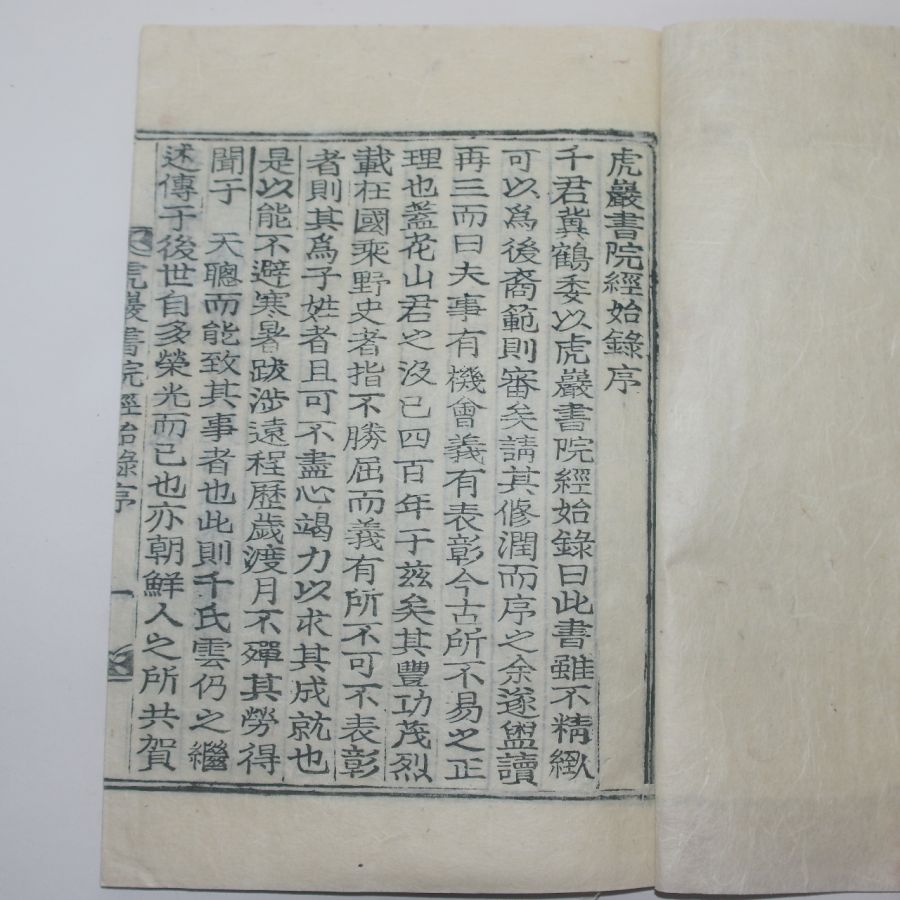 虎巖書院經始錄序
千君冀鶴委以虎巖書院經始錄曰此書雖不精緻
可以爲後裔範則審矣請其修潤而序之余遂盥讀
再三而曰夫事有機會義有表彰今古所不易之正
理也蓋花山君之沒已四百年于茲矣其豐功茂烈
載在國乘野史者指不勝屈而義有所不可不表彰
者則其爲子姓者且可不盡心竭力以求其成就也
是以能不避寒暑跋涉遠程歷歲渡月不殫其勞得
聞于 天聰而能致其事者也此則千氏雲仍之繼
述傳于後世自多榮光而已也亦朝鮮人之所共賀
虎巖書院經始錄序 一